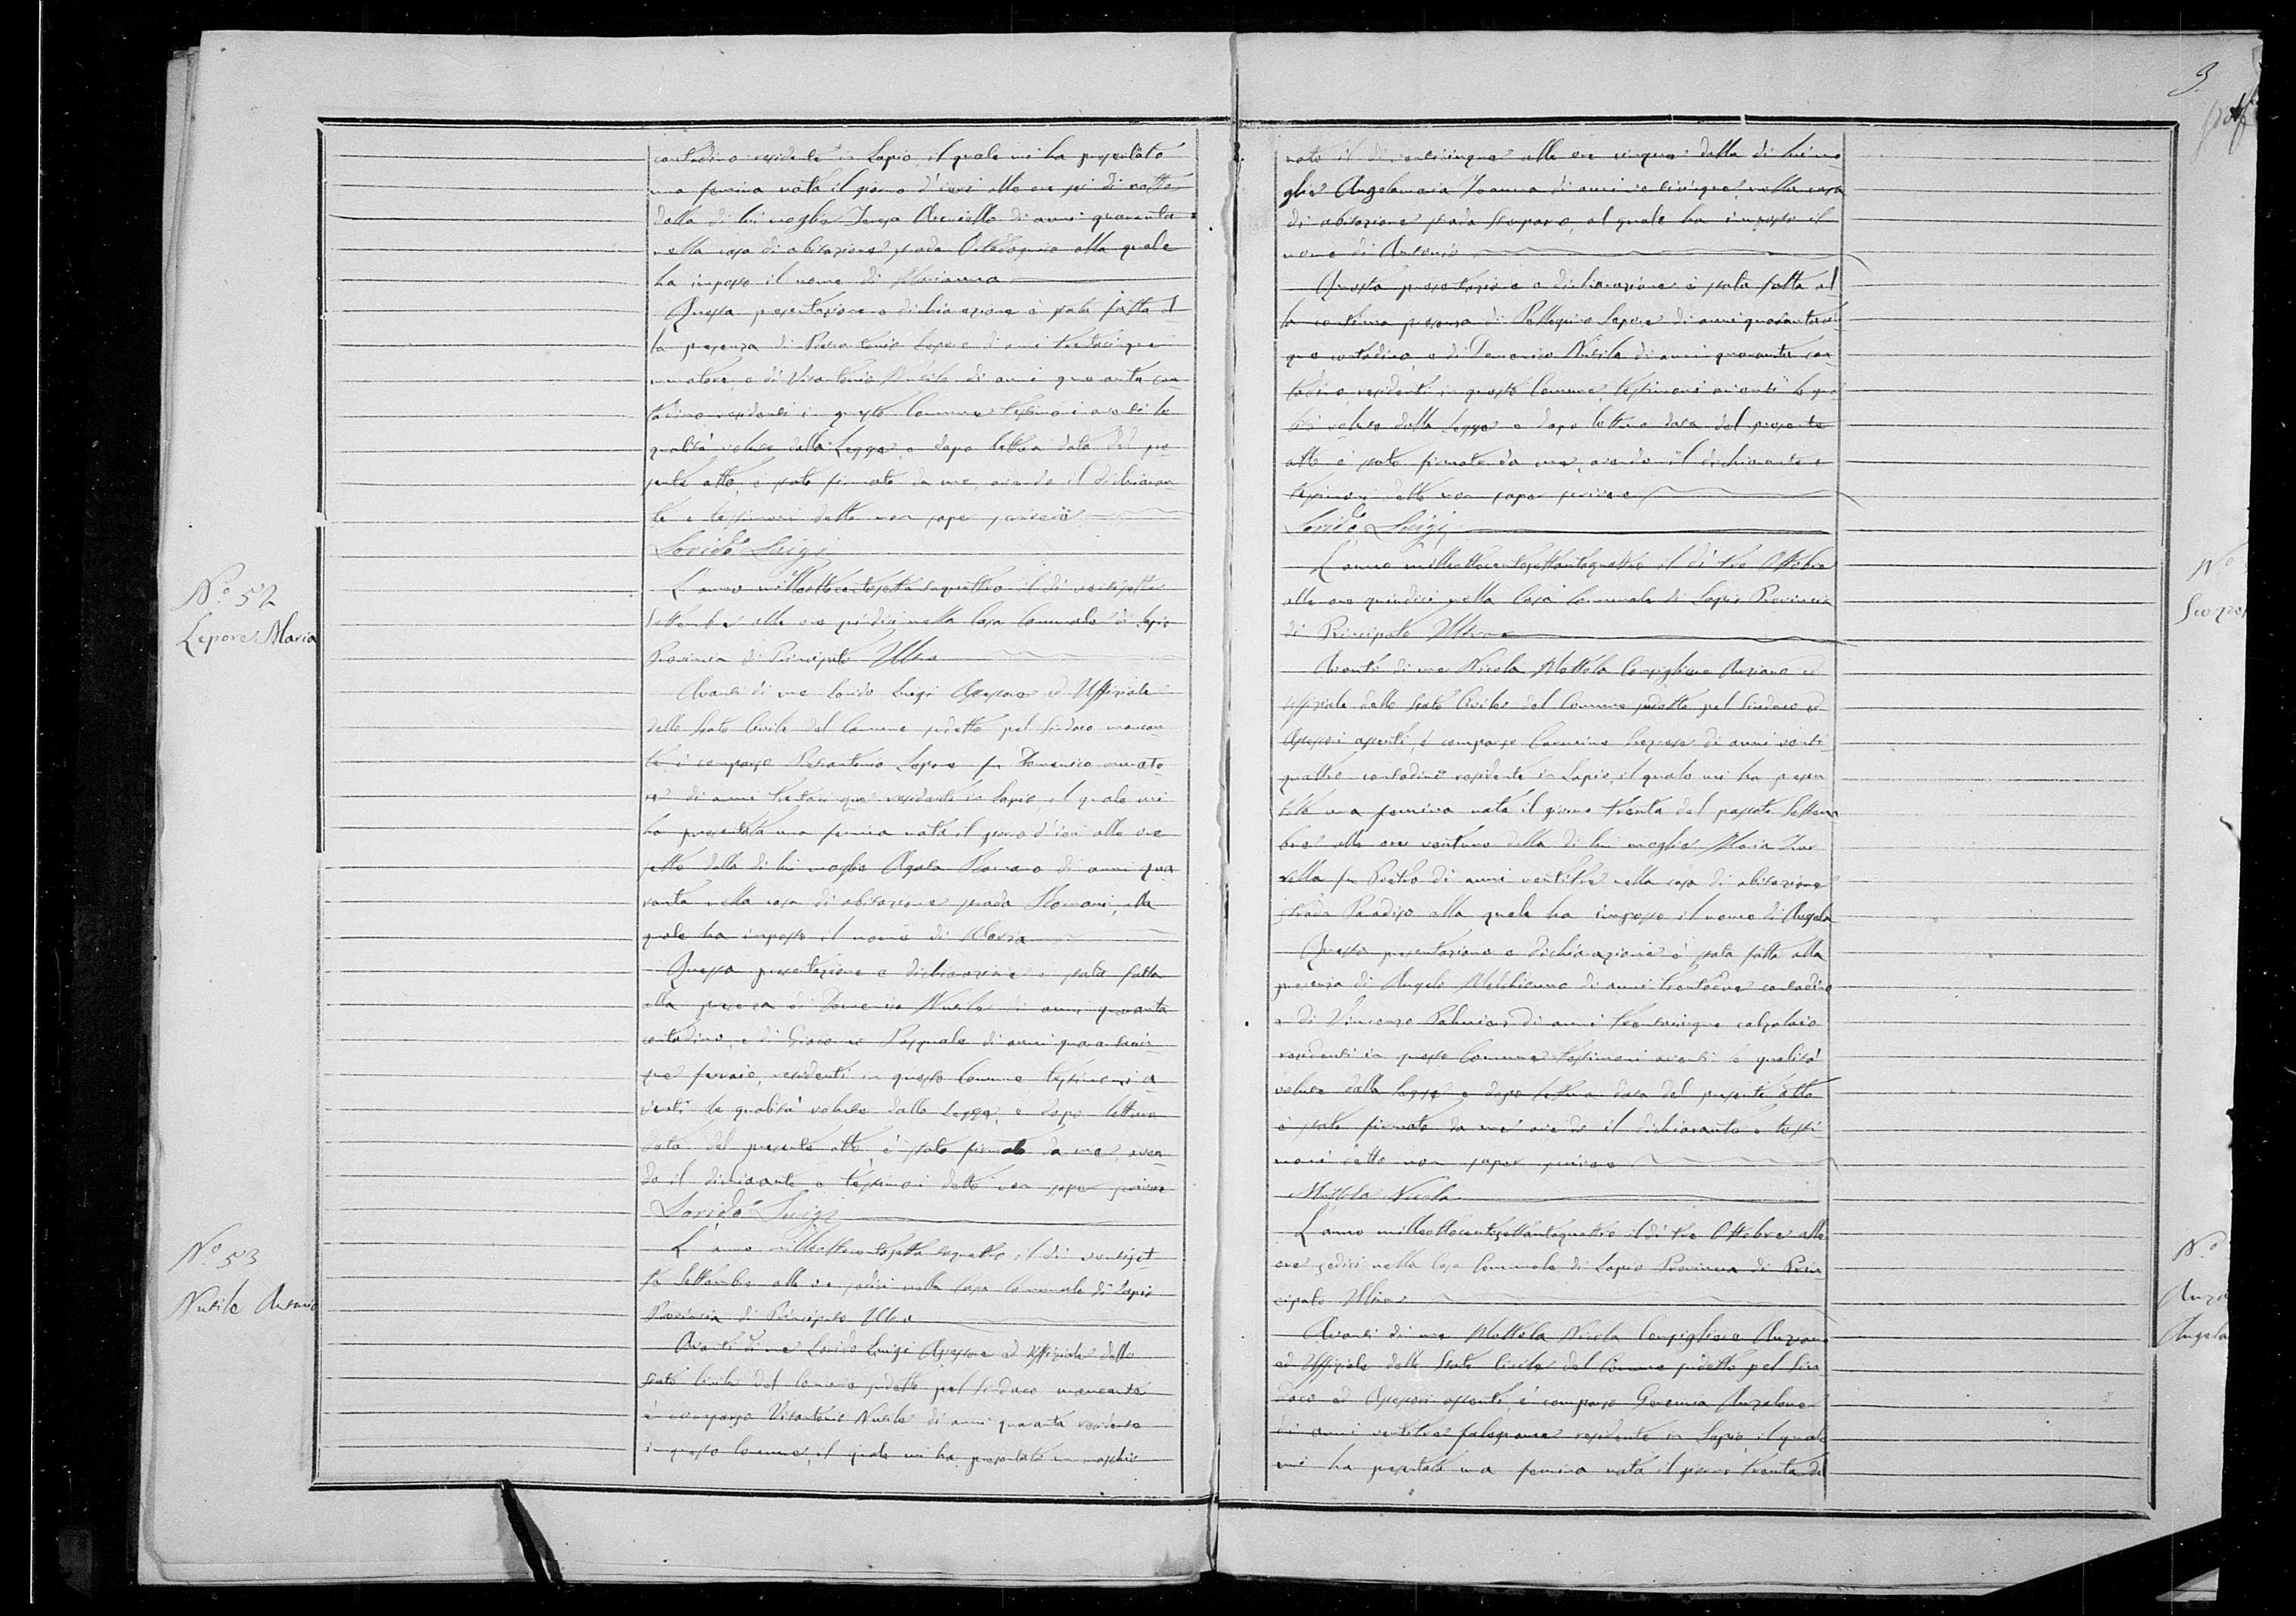 contadino residente in Lapio, il quale mi ha presentato
una femina nata il giorno d'ieri alle ore sei di notte
dalla di lui moglie Teresa di anni quaranta
nella casa di abitazione strada alla quale
ha imposto il nome di Marianna
Questa presentazione e dichiarazione è stata fatta al
la presenza di Pietrantonio Lepore di anni trentacinque
muratore, e di Vitantonio Nusile di anni quaranta con
tadino residenti in questo Comune testimoni aventi le
qualità volute dalla Legge, e dopo lettura data del pre
sente atto, è stato firmato da me, avendo il dichiaran
te e testimoni detto non saper scrivere
Lorido Luigi
N.º 52
Lepore Maria
L'anno milleottocentosettantaquattro il dì ventisette
Settembre alle ore quindici nella Casa Comunale di Lapio
Provincia di Principato Ultra
Avanti di me Lorido Luigi Assessore ed Uffiziale
dello Stato Civile del Comune sudetto pel Sindaco mancan
te, è comparso Pietrantonio Lepore fu Domenico murato
re di anni trentacinque residente in Lapio, il quale mi
ha presentata una femina nata il giorno d'ieri alle ore
sette dalla di lui moglie Agata Romano di anni qua
ranta nella casa di abitazione strada Romani, alla
quale ha imposto il nome di Maria
Questa presentazione e dichiarazione è stata fatta
alla presenza di Domenico Nusile di anni quaranta
contadino, e di Pasquale di anni quarantacin
que ferraio, residenti in questo Comune testimoni a
venti le qualità volute dalla Legge, e dopo lettura
data del presente atto, è stato firmato da me, aven
do il dichiarante e testimoni detto non saper scrivere
Lorido Luigi
N.º 53
Nusile Antonio
L'anno milleottocentosettantaquattro il dì ventiset
te Settembre alle ore sedici nella Casa Comunale di Lapio
Provincia di Principato Ultra
Avanti di me Lorido Luigi Assessore ed Uffiziale dello
Stato Civile del Comune sudetto pel Sindaco mancante
è comparso Vitantonio Nusile di anni quaranta residente
in questo Comune, il quale mi ha presentato un maschio
3
nato il dì venticinque alle ore cinque dalla di lui mo
glie Angelamaria Ioanna di anni nella casa
di abitazione strada, al quale ha imposto il
nome di Antonio
Questa presentazione e dichiarazione è stata fatta al
la continua presenza di Pellegrino Lepore di anni quarantacin
que contadino, e di Domenico Nusile di anni quaranta con
tadino, residenti in questo Comune, testimoni aventi le qua
lità volute dalla Legge e dopo lettura data del presente
atto è stato firmato da me, avendo il dichiarante e
testimoni detto non saper scrivere
Lorido Luigi
N.º
L'anno milleottocentosettantaquattro il dì tre Ottobre
alle ore quindici nella Casa Comunale di Lapio Provincia
di Principato Ultra
Avanti di me Nicola Mottola Consigliere Anziano ed
Uffiziale dello Stato Civile del Comune sudetto pel Sindaco ed
Assessori assenti, è comparso Carmine di anni venti
quattro contadino residente in Lapio, il quale mi ha presen
tato una femina nata il giorno trenta del passato Settem
bre alle ore ventuno dalla di lui moglie Maria
fu Pietro di anni ventitre nella casa di abitazione
strada Paradiso alla quale ha imposto il nome di Angela
Questa presentazione e dichiarazione è stata fatta alla
presenza di Angelo Melchionno di anni trentadue contadino
e di Vincenzo di anni trentacinque calzolaio
residenti in questo Comune testimoni aventi le qualità
volute dalla Legge e dopo lettura data del presente atto
è stato firmato da me avendo il dichiarante e testi
moni detto non saper scrivere
Mottola Nicola
N.º
Angela
L'anno milleottocentosettantaquattro il dì tre Ottobre alle
ore sedici nella Casa Comunale di Lapio Provincia di Prin
cipato Ultra
Avanti di me Mottola Nicola Consigliere Anziano
ed Uffiziale dello Stato Civile del Comune sudetto pel Sin
daco ed Assessori assenti, è comparso Anzalone
di anni ventitre falegname residente in Lapio, il quale
mi ha presentato una femina nata il giorno trenta del